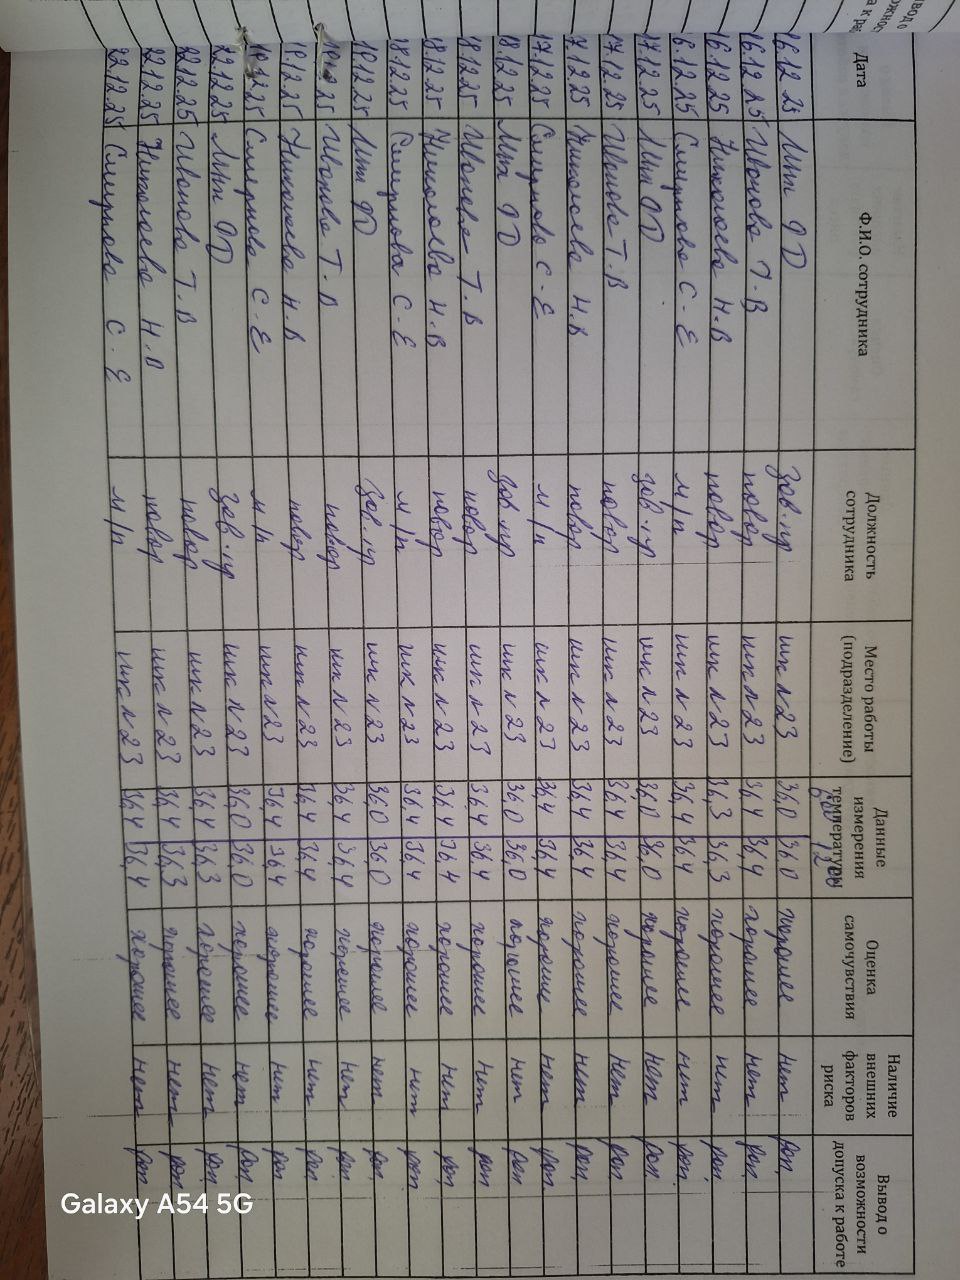 Дата Ф.И.О. сотрудника Должность сотрудника Место работы (подразделение) Данные измерения температуры 12 00 Оценка самочувствия Наличие внешних факторов риска Вывод о возможности допуска к работе
16.12.25 зав.пр шк л 23 36,0 36,0 хорошее нет доп.
16.12.25 Иванова Т.В повар шк л 23 36,4 36,4 хорошее нет доп.
16.12.25 Николаева Н.В повар шк л 23 36,3 36,3 хорошее нет доп.
16.12.25 Смирнова С.Е м/п шк л 23 36,4 36,4 хорошее нет доп.
17.12.25 зав.пр шк л 23 36,0 36,0 хорошее нет доп.
17.12.25 Иванова Т.В повар шк л 23 36,4 36,4 хорошее нет доп.
17.12.25 Николаева Н.В повар шк л 23 36,4 36,4 хорошее нет доп.
17.12.25 Смирнова С.Е м/п шк л 23 36,4 36,4 хорошее нет доп.
18.12.25 зав.пр шк л 23 36,0 36,0 хорошее нет доп.
18.12.25 Иванова Т.В повар шк л 23 36,4 36,4 хорошее нет доп.
18.12.25 Николаева Н.В повар шк л 23 36,4 36,4 хорошее нет доп.
18.12.25 Смирнова С.Е м/п шк л 23 36,4 36,4 хорошее нет доп.
19.12.25 зав.пр шк л 23 36,0 36,0 хорошее нет доп.
Иванова Т.В повар шк л 23 36,4 36,4 хорошее нет доп.
19.12.25 Николаева Н.В повар шк л 23 36,4 36,4 хорошее нет доп.
19.12.25 Смирнова С.Е м/п шк л 23 36,4 36,4 хорошее нет доп.
22.12.25 зав.пр шк л 23 36,0 36,0 хорошее нет доп.
22.12.25 Иванова Т.В повар шк л 23 36,4 36,3 хорошее нет доп.
22.12.25 Николаева Н.В повар шк л 23 36,4 36,3 хорошее нет доп.
22.12.25 Смирнова С.Е м/п шк л 23 36,4 36,4 хорошее нет доп.
Galaxy A54 5G